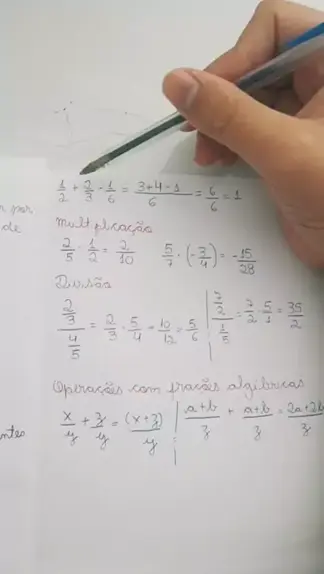 1/2 + 2/3 - 1/6 = 3+4-1/6 = 6/6 = 1
por
de
Multiplicação
2/5 · 1/2 = 2/10    5/7 · (-3/4) = -15/28
Divisão
2/3 / 4/5 = 2/3 · 5/4 = 10/12 = 5/6 | 7/2 / 1/5 = 7/2 · 5/1 = 35/2
Operações com frações algébricas
x/y + z/y = (x+z)/y | a+b/z + a+b/z = 2a+2b/z
ntes